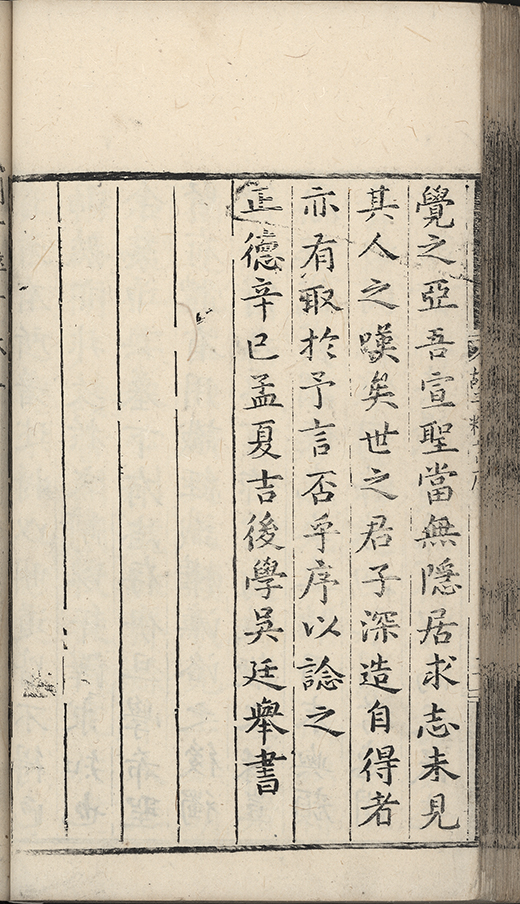 覺之亞吾宣聖當無隱居求志未見
其人之嘆矣世之君子深造自得者
亦有取於予言否乎序以諗之
正德辛巳孟夏吉後學吳廷舉書